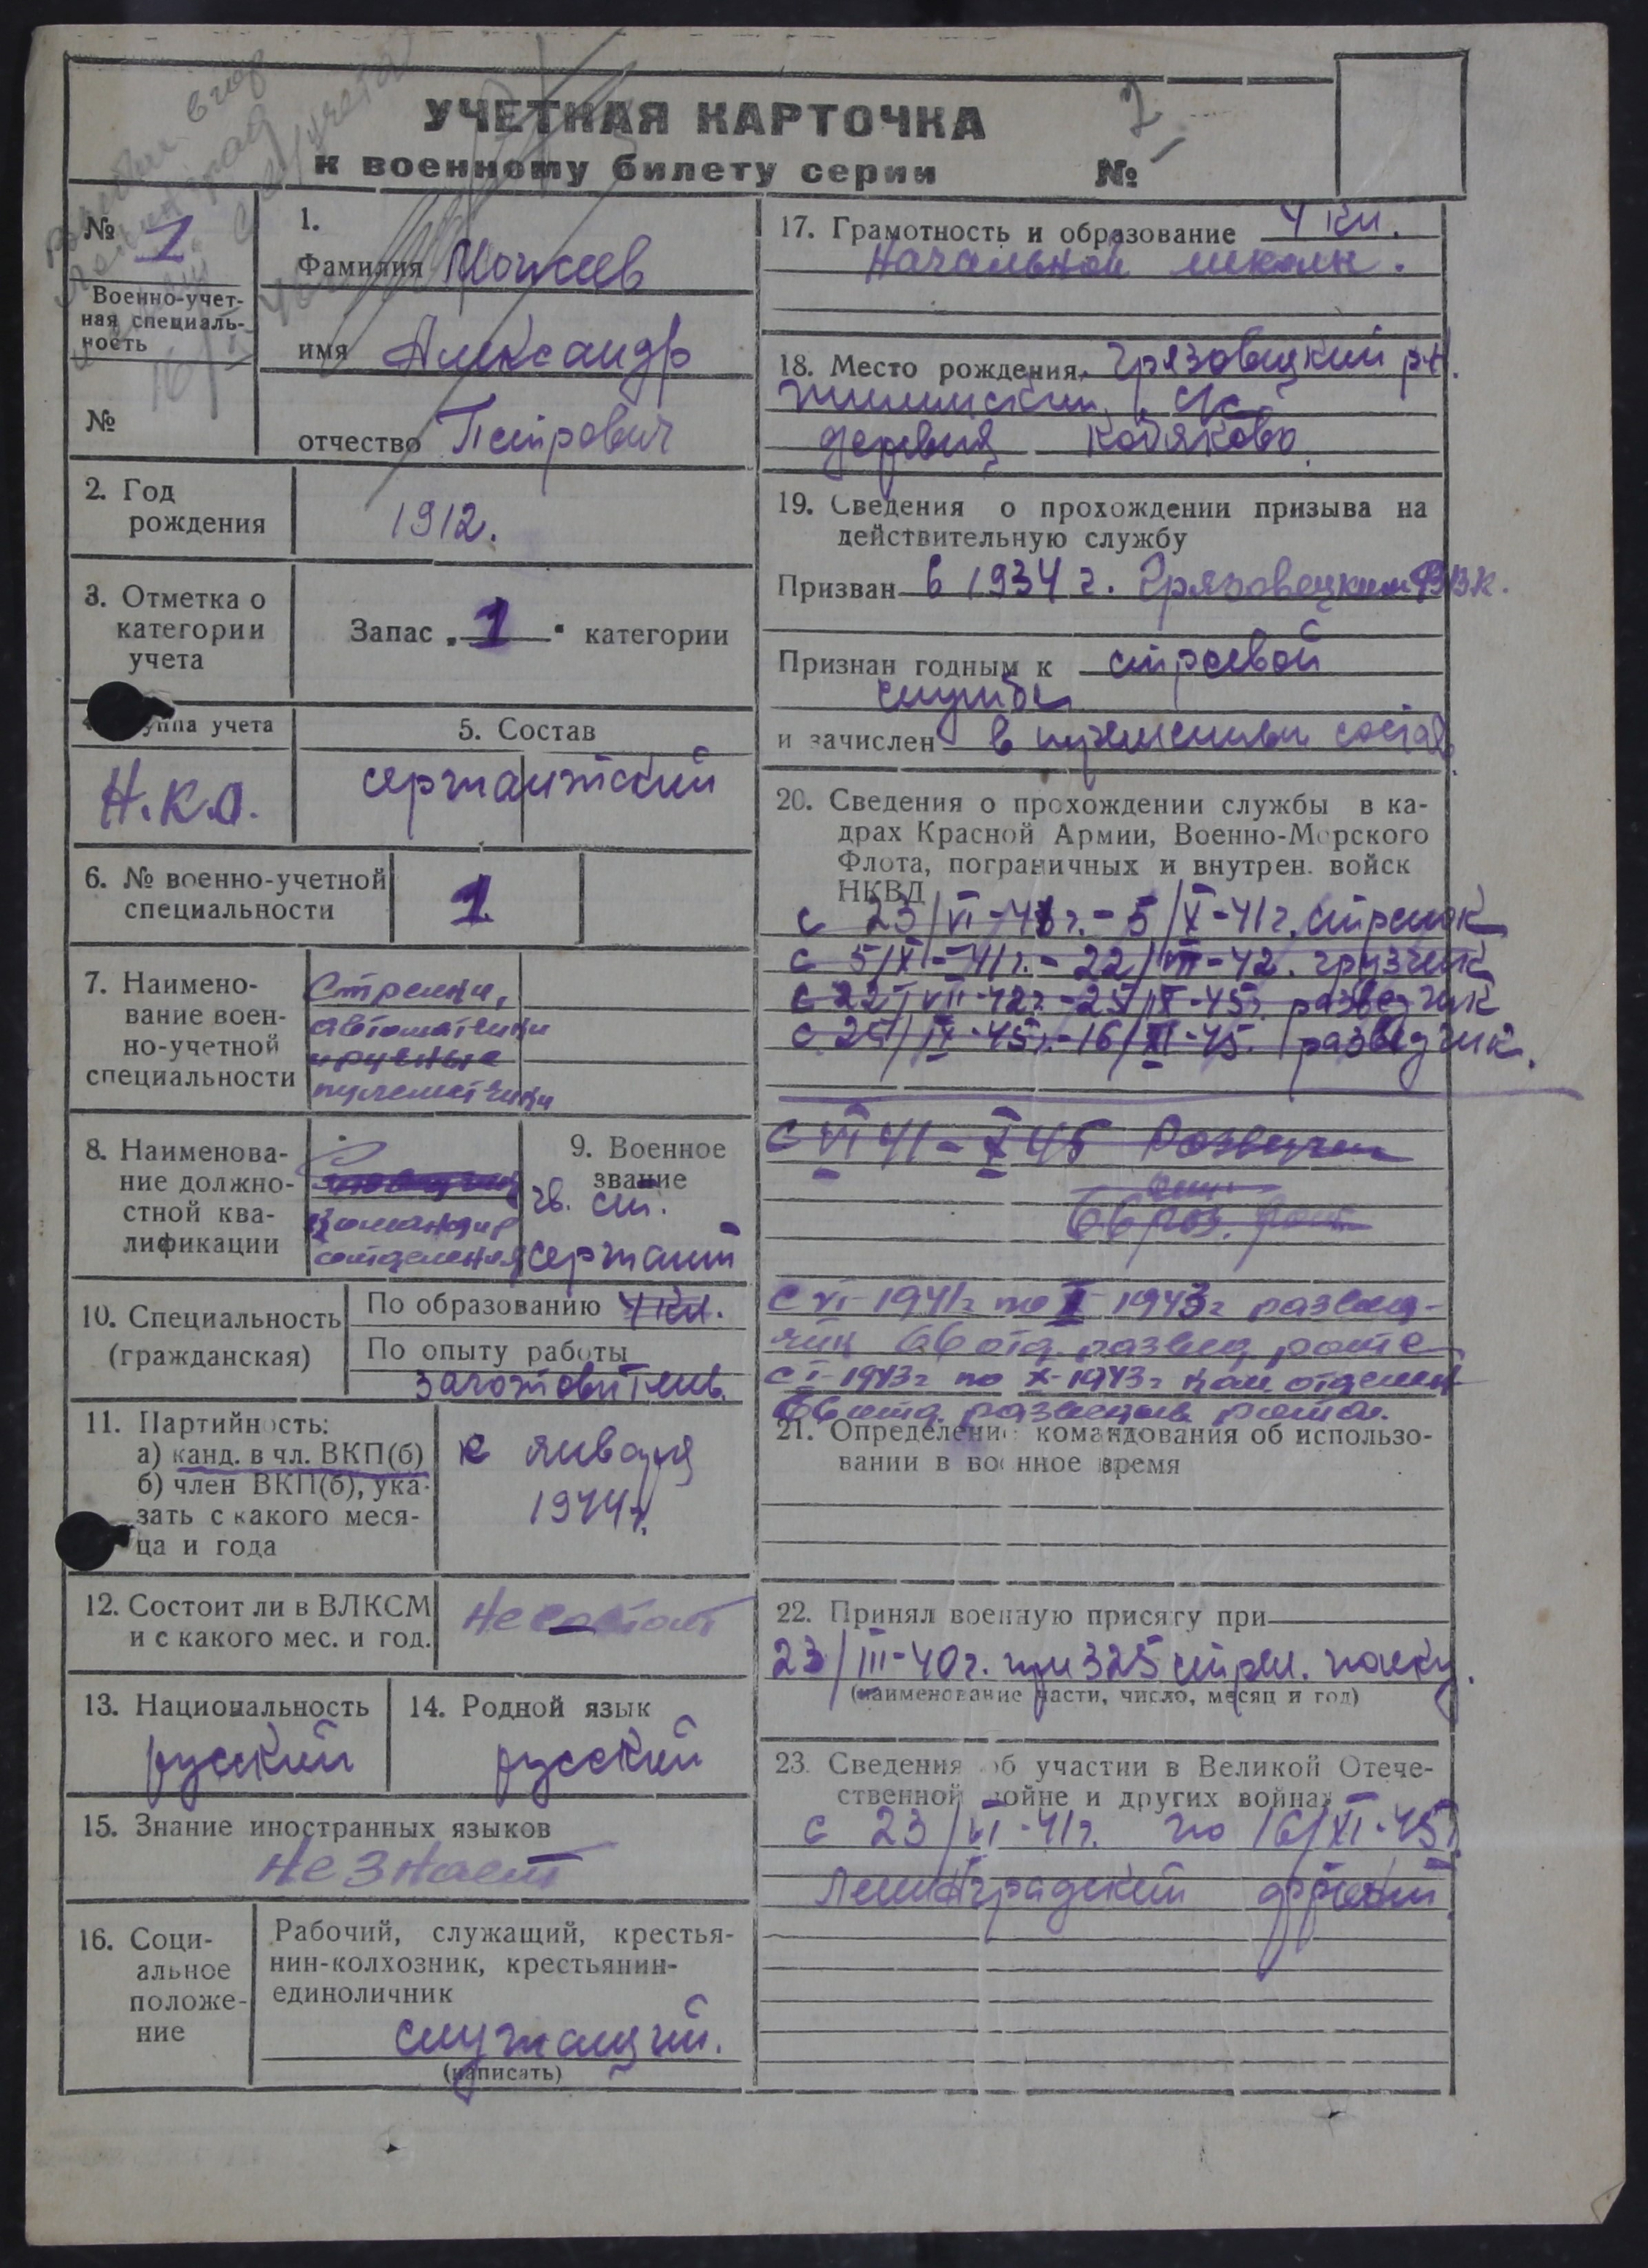 УЧЕТНАЯ КАРТОЧКА
к военному билету серии №
№ 1
Военно-учет-
ная специаль-
ность
№
1.
Фамилия
имя Александр
отчество Петрович
2. Год
рождения
1912.
3. Отметка о
категории
учета
Запас „1" категории
уппа учета
Н.К.О.
5. Состав
сержантский
6. № военно-учетной
специальности
1
7. Наимено-
вание воен-
но-учетной
специальности
Стрелки,
автоматчики
ручные
пулеметчики
8. Наименова-
ние должно-
стной ква-
лификации
Командир
отделения
9. Военное
звание
гв. ст.
сержант
10. Специальность
(гражданская)
По образованию 4 кл.
По опыту работы
заготовитель.
11. Партийность:
а) канд. в чл. ВКП(б)
б) член ВКП(б), ука-
зать с какого меся-
ца и года
с января
1944г.
12. Состоит ли в ВЛКСМ
и с какого мес. и год.
Не состоит
13. Национальность
русский
14. Родной язык
русский
15. Знание иностранных языков
Не знает
16. Соци-
альное
положе-
ние
Рабочий, служащий, крестья-
нин-колхозник, крестьянин-
единоличник
служащий.
(написать)
17. Грамотность и образование 4 кл.
начальной школы.
18. Место рождения Грязовецкий р-н.
с/с
деревня
19. Сведения о прохождении призыва на
действительную службу
Призван в 1934 г. Грязовецким РВК.
Признан годным к строевой
службе
и зачислен в
20. Сведения о прохождении службы в ка-
драх Красной Армии, Военно-Морского
Флота, пограничных и внутрен. войск
НКВД
с 23/VI-41г. - 5/XI-41г. стрелок
с 5/XI-41г. - 22/VII-42. грузчик
с 22/VII-42г. - 25/IX-45г. разведчик
с 25/IX-45г. - 16/XI-45. разведчик.
с VI 41 - X 45 Разведчик
66 раз. рота
с VI-1941г по I 1943г развед-
чик 66 отд. развед. роте
с I-1943г по X-1943г ком отделен
66 отд. развед рота.
21. Определение командования об использо-
вании в военное время
22. Принял военную присягу при
23/III-40г. при 325 стрел. полку.
(наименование части, число, месяц и год)
23. Сведения об участии в Великой Отече-
ственной войне и других войнах
с 23/VI-41г. по 16/XI-45г.
Ленинградский фронт